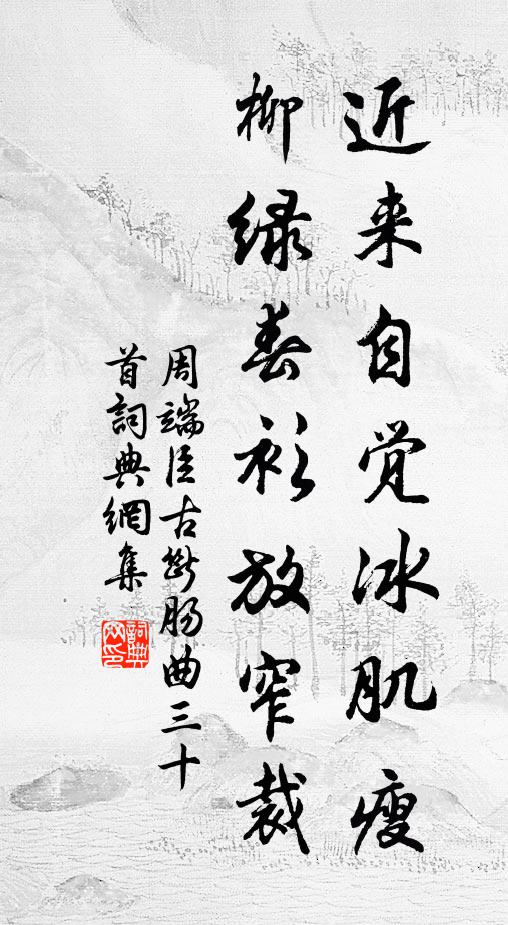 近来自觉冰肌瘦
柳绿春衫放窄裁
周端臣古断肠曲三十
首詞典網集
詞典网印